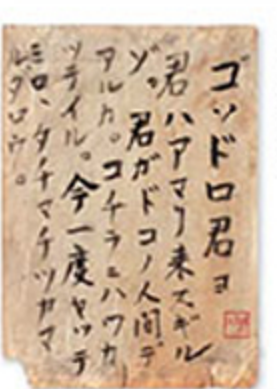 ゴッドロ君ヨ
君ハアマリ来スギル
ゾ。君ガドコノ人間デ
アルカ。コチラニハワカ
ッテイル。今一度ヤッテ
ミロ、タチマチツカマ
ルダロウ。